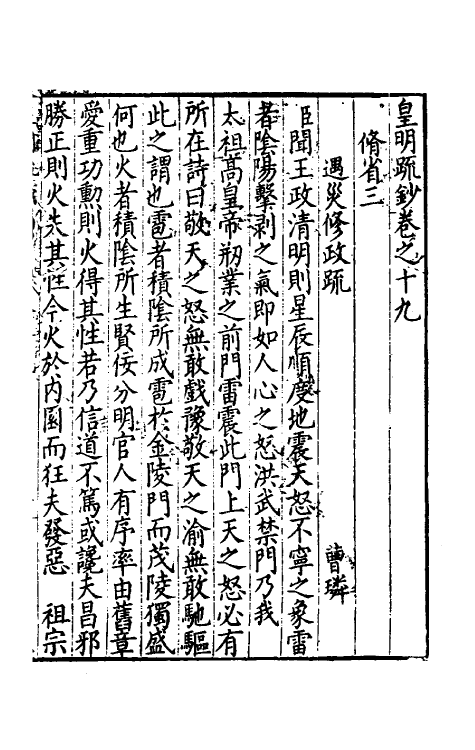 皇明疏鈔卷之十九
脩省三
遇災修政疏　曹璘
臣聞王政清明則星辰順度地震天怒不寧之象雷
者陰陽擊剥之氣即如人心之怒洪武禁門乃我
太祖高皇帝剏業之前門雷震此門上天之怒必有
所在詩曰敬天之怒無敢戲豫敬天之渝無敢馳驅
此之謂也雹者積陰所成雹於金陵門而茂陵獨盛
何也火者積陰所生賢佞分明官人有序率由舊章
愛重功勳則火得其性若乃信道不篤或讒夫昌邪
勝正則火失其性今火於内園而狂夫發惡　祖宗